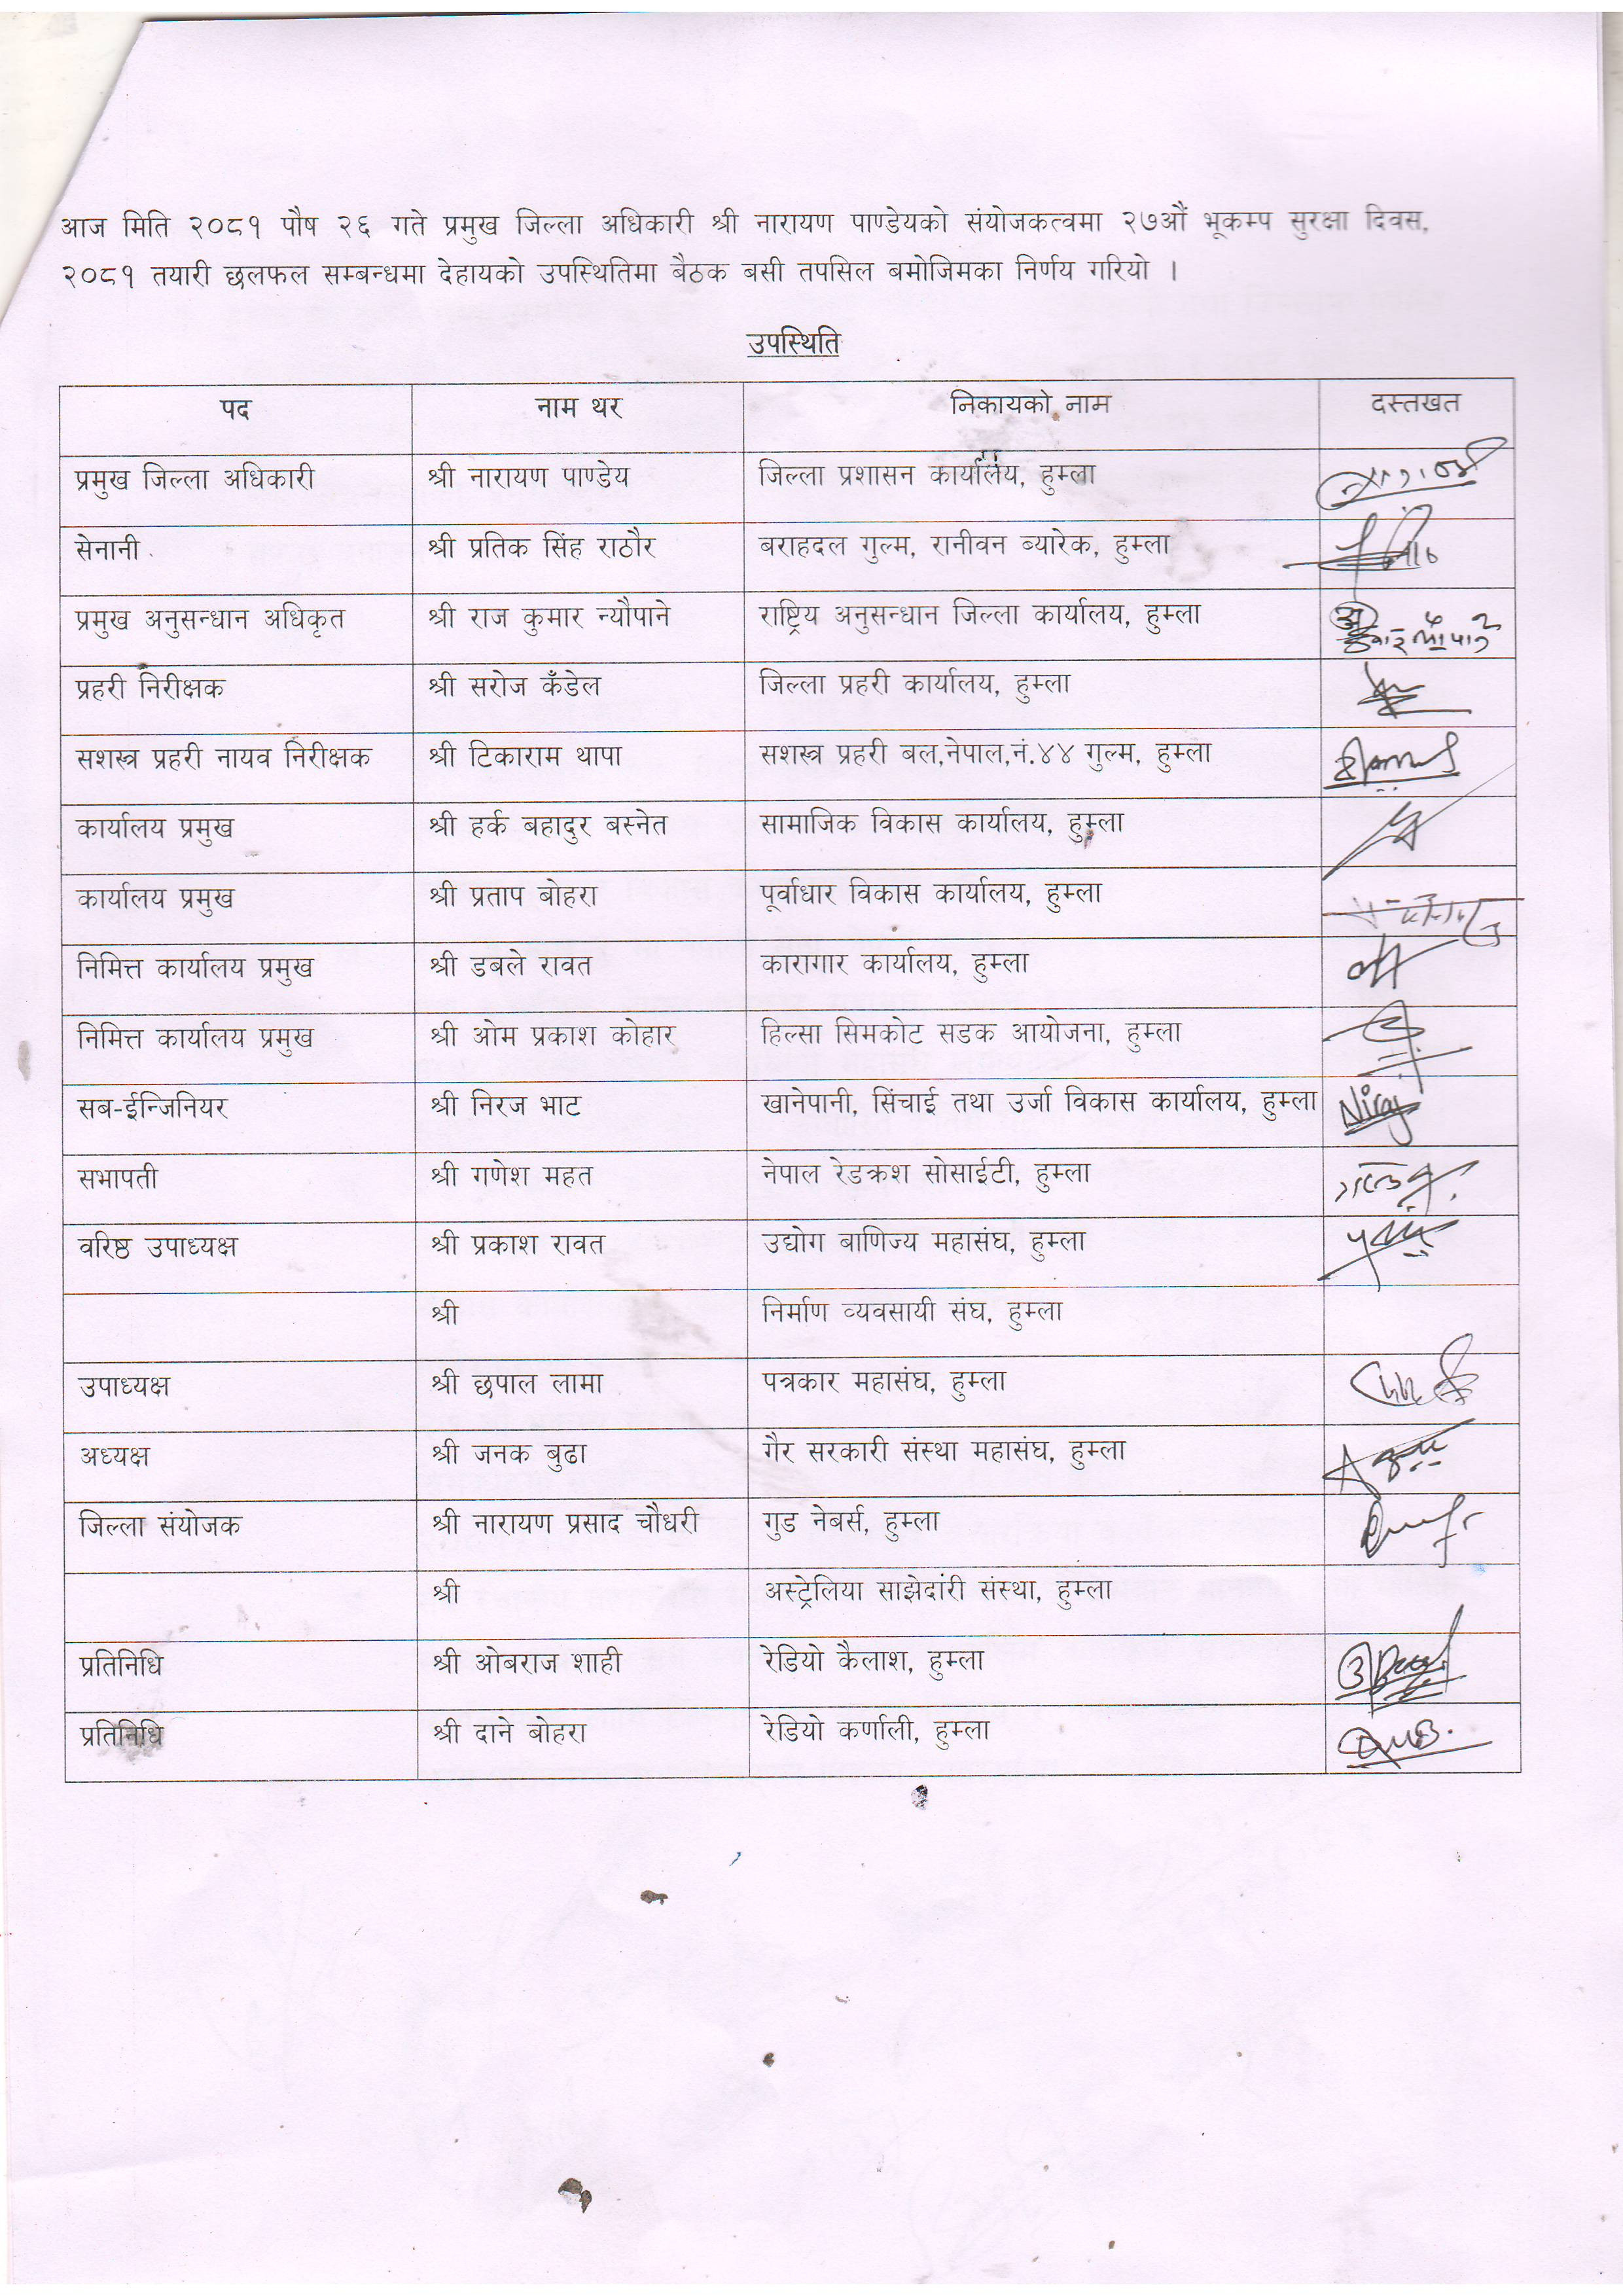 आज मिति २०८१ पौष २६ गते प्रमुख जिल्ला अधिकारी श्री नारायण पाण्डेयको संयोजकत्वमा २७औं भूकम्प सुरक्षा दिवस,
२०८१ तयारी छलफल सम्बन्धमा देहायको उपस्थितिमा बैठक बसी तपसिल बमोजिमका निर्णय गरियो ।
उपस्थिति
पद नाम थर निकायको नाम दस्तखत
प्रमुख जिल्ला अधिकारी श्री नारायण पाण्डेय जिल्ला प्रशासन कार्यालय, हुम्ला
सेनानी श्री प्रतिक सिंह राठौर बराहदल गुल्म, रानीवन ब्यारेक, हुम्ला
प्रमुख अनुसन्धान अधिकृत श्री राज कुमार न्यौपाने राष्ट्रिय अनुसन्धान जिल्ला कार्यालय, हुम्ला
प्रहरी निरीक्षक श्री सरोज कँडेल जिल्ला प्रहरी कार्यालय, हुम्ला
सशस्त्र प्रहरी नायव निरीक्षक श्री टिकाराम थापा सशस्त्र प्रहरी बल,नेपाल,नं.४४ गुल्म, हुम्ला
कार्यालय प्रमुख श्री हर्क बहादुर बस्नेत सामाजिक विकास कार्यालय, हुम्ला
कार्यालय प्रमुख श्री प्रताप बोहरा पूर्वाधार विकास कार्यालय, हुम्ला
निमित्त कार्यालय प्रमुख श्री डबले रावत कारागार कार्यालय, हुम्ला
निमित्त कार्यालय प्रमुख श्री ओम प्रकाश कोहार हिल्सा सिमकोट सडक आयोजना, हुम्ला
सब-ईन्जिनियर श्री निरज भाट खानेपानी, सिंचाई तथा उर्जा विकास कार्यालय, हुम्ला Niraj
सभापती श्री गणेश महत नेपाल रेडक्रश सोसाईटी, हुम्ला
वरिष्ठ उपाध्यक्ष श्री प्रकाश रावत उद्योग बाणिज्य महासंघ, हुम्ला
श्री निर्माण व्यवसायी संघ, हुम्ला
उपाध्यक्ष श्री छपाल लामा पत्रकार महासंघ, हुम्ला
अध्यक्ष श्री जनक बुढा गैर सरकारी संस्था महासंघ, हुम्ला
जिल्ला संयोजक श्री नारायण प्रसाद चौधरी गुड नेबर्स, हुम्ला
श्री अस्ट्रेलिया साझेदारी संस्था, हुम्ला
प्रतिनिधि श्री ओबराज शाही रेडियो कैलाश, हुम्ला
प्रतिनिधि श्री दाने बोहरा रेडियो कर्णाली, हुम्ला